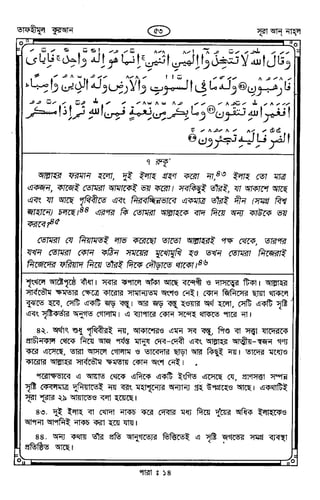 তাফহীমুল কুরআন
৫৩
সূরা আন্ নাহ্‌ল
وَقَالَ اللهُ لَا تَتَّخِذُوا إِلٰهَيْنِ اثْنَيْنِ إِنَّمَا هُوَ إِلٰهٌ وَّاحِدٌ فَإِيَّايَ
فَارْهَبُونِ ﴿٥١﴾ وَلَهُ مَا فِي السَّمٰوٰتِ وَالْأَرْضِ وَلَهُ الدِّينُ وَاصِبًا
أَفَغَيْرَ اللهِ تَتَّقُونَ ﴿٥٢﴾ وَمَا بِكُمْ مِنْ نِعْمَةٍ فَمِنَ اللهِ ثُمَّ إِذَا مَسَّكُمُ
الضُّرُّ فَإِلَيْهِ تَجْئَرُونَ ﴿٥٣﴾
৭ রুকূ'
আল্লাহর ফরমান হলো, দুই ইলাহ গ্রহণ করো না,৪৩ ইলাহ তো মাত্র
একজন, কাজেই তোমরা আমাকেই ভয় করো। সবকিছুই তাঁরই, যা আকাশে আছে
এবং যা আছে পৃথিবীতে এবং নিরবচ্ছিন্নভাবে একমাত্র তাঁরই দীন (সমগ্র বিশ্ব
জাহানে) চলছে।৪৪ এরপর কি তোমরা আল্লাহকে বাদ দিয়ে অন্য কাউকে ভয়
করবে?৪৫
তোমরা যে নিয়ামতই লাভ করেছো তাতো আল্লাহরই পক্ষ থেকে, তারপর
যখন তোমরা কোন কঠিন সময়ের মুখোমুখি হও তখন তোমরা নিজেরাই
নিজেদের ফরিয়াদ নিয়ে তাঁরই দিকে দৌড়াতে থাকো।৪৬
শৃংখলে আষ্টেপৃষ্ঠে বাঁধা। সবার কপালে আঁকা আছে বন্দেগী ও দাসত্বের টিকা। আল্লাহর
সার্বভৌম ক্ষমতার ক্ষেত্রে কারোর সামান্যতম অংশও নেই। কোন জিনিসের ছায়া থাকলে
বুঝতে হবে, সেটি একটি জড় বস্তু। আর জড় বস্তু হওয়ার অর্থ হলো, সেটি একটি সৃষ্টি
এবং সৃষ্টিকর্তার অনুগত গোলাম। এ ব্যাপারে কোন সন্দেহ থাকতে পারে না।
৪২. অর্থাৎ শুধু পৃথিবীরই নয়, আকাশেরও এমন সব বস্তু, পিণ্ড বা সত্তা যাদেরকে
প্রাচীনকাল থেকে নিয়ে আজ পর্যন্ত মানুষ দেব-দেবী এবং আল্লাহর আত্মীয়-স্বজন গণ্য
করে এসেছে, তারা আসলে গোলাম ও তাবেদার ছাড়া আর কিছুই নয়। তাদের মধ্যেও
কারোর আল্লাহর সার্বভৌম ক্ষমতায় কোন অংশ নেই।
পরোক্ষভাবে এ আয়াত থেকে এদিকে একটি ইংগিত এসেছে যে, প্রাণসত্তা সম্পন্ন
সৃষ্টি কেবলমাত্র দুনিয়াতেই নয় বরং মহাশূন্যের অন্যান্য গ্রহ উপগ্রহেও আছে। একথাটিই
সূরা শূরার ২৯ আয়াতেও বলা হয়েছে।
৪৩. দুই ইলাহ বা খোদা নাকচ করে দেবার মধ্য দিয়ে দুয়ের অধিক ইলাহকেও
আপনা আপনিই নাকচ করা হয়ে যায়।
৪৪. অন্য কথায় তাঁর প্রতি আনুগত্যের ভিত্তিতেই এ সৃষ্টি জগতের সমগ্র ব্যবস্থা
প্রতিষ্ঠিত আছে।
পারা : ১৪